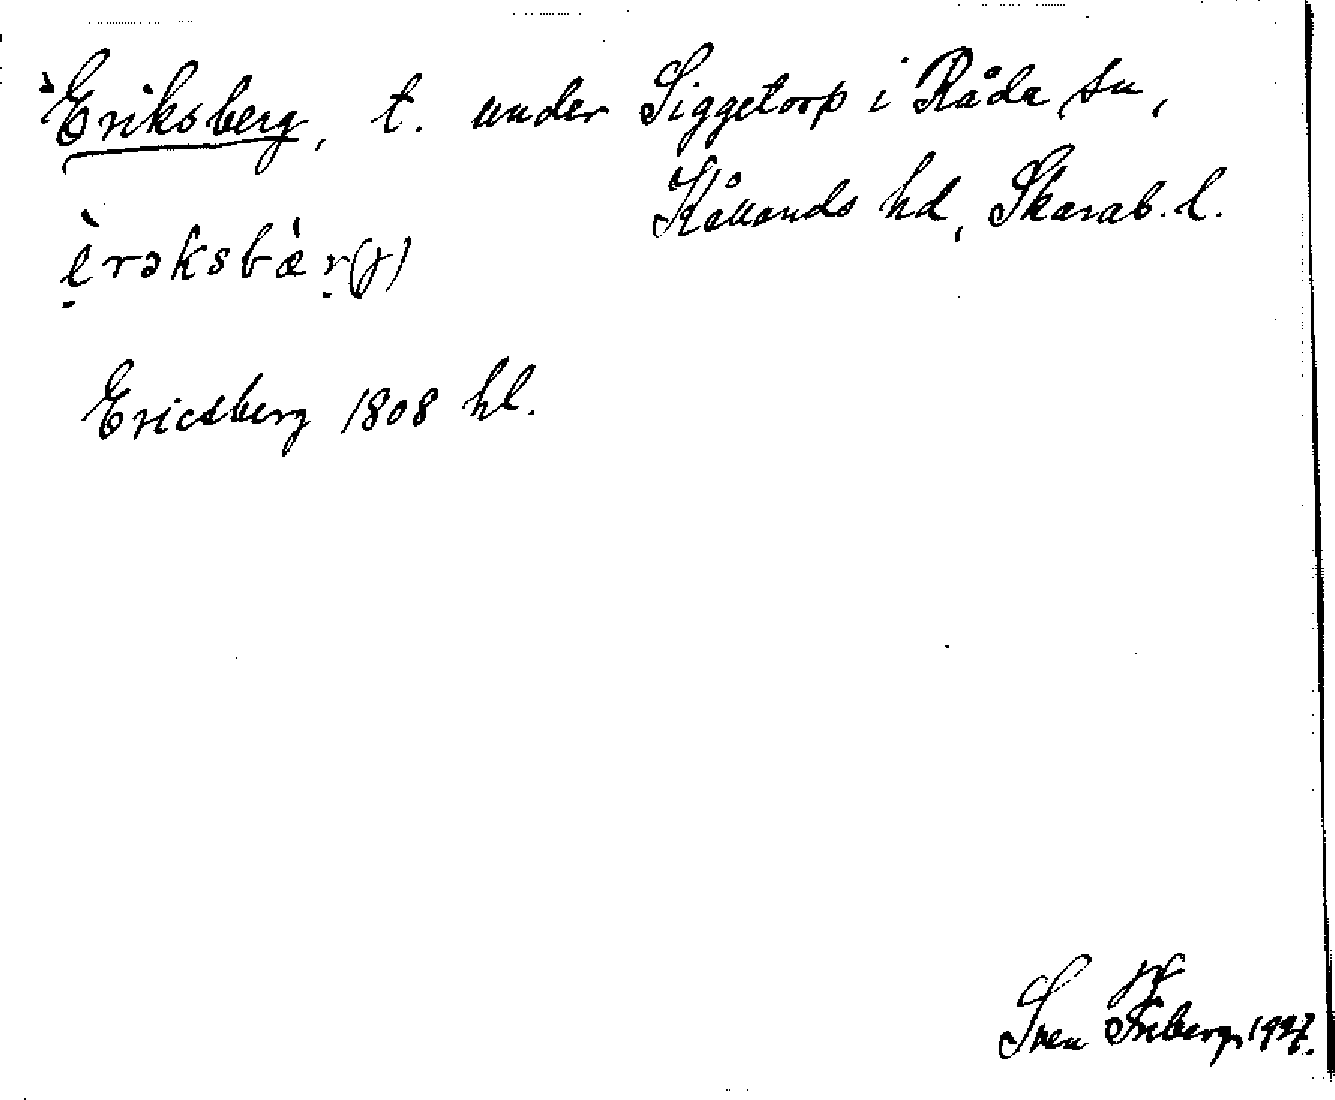 Eriksberg, t. under Siggetorp i Råda sn,
Kållands hd, Skarab. l.
è̱rəksbæ̀ṛ(j)
Ericsberg 1808 hl.
Sven Friberg, 1927.